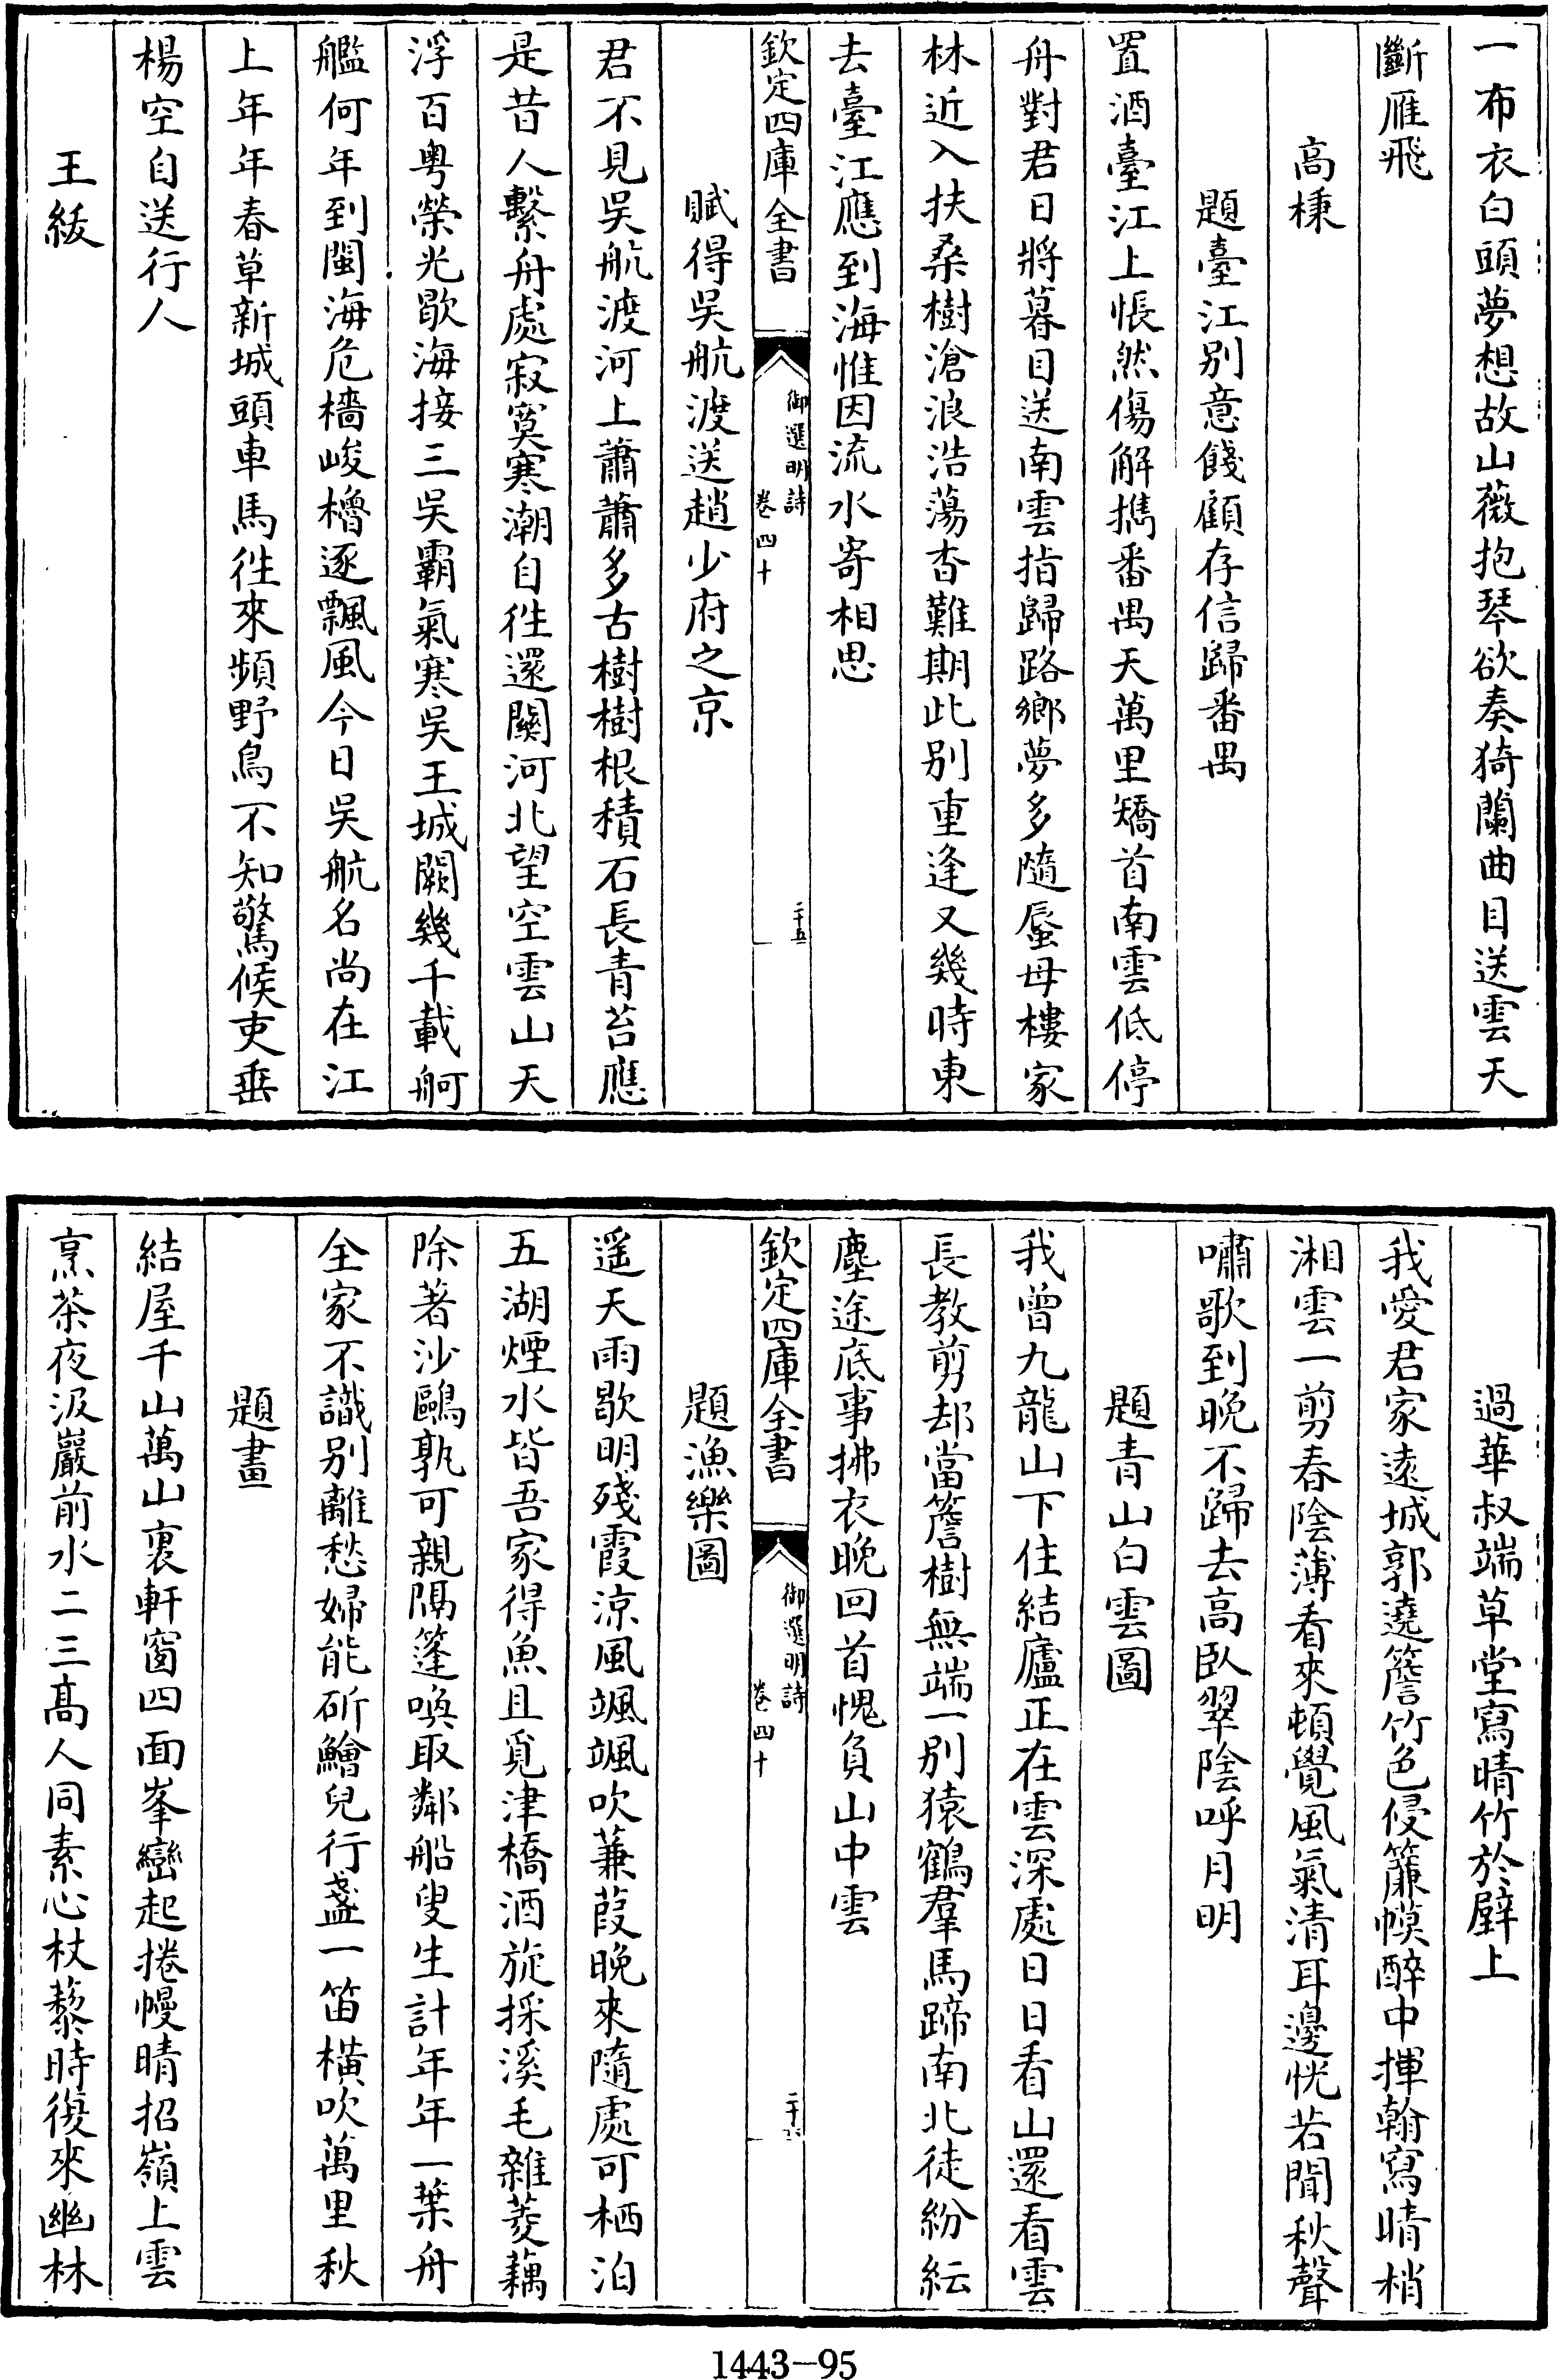 一布衣白頭夢想故山薇抱琴欲奏猗蘭曲目送雲天
斷雁飛
高棅
題臺江别意餞顧存信歸番禺
置酒臺江上悵然傷解攜番禺天萬里矯首南雲低停
舟對君日將暮目送南雲指歸路鄉夢多隨蜃母樓家
林近入扶桑樹滄浪浩蕩杳難期此别重逢又幾時東
去臺江應到海惟因流水寄相思
欽定四庫全書
御選明詩
卷四十
二十五
賦得吳航渡送趙少府之京
君不見吳航渡河上蕭蕭多古樹樹根積石長青苔應
是昔人繫舟處寂寞寒潮自徃還關河北望空雲山天
浮百粵榮光歇海接三吳霸氣寒吳王城闕幾千載舸
艦何年到閩海危檣峻櫓逐飄風今日吳航名尚在江
上年年春草新城頭車馬徃來頻野鳥不知驚候吏垂
楊空自送行人
王紱
過華叔端草堂寫晴竹於壁上
我愛君家遠城郭遶簷竹色侵簾幙醉中揮翰寫晴梢
湘雲一剪春陰薄看來頓覺風氣清耳邊恍若聞秋聲
嘯歌到晚不歸去高臥翠陰呼月明
題青山白雲圖
我曾九龍山下住結廬正在雲深處日日看山還看雲
長教剪却當簷樹無端一别猿鶴羣馬蹄南北徒紛紜
塵途底事拂衣晚回首愧負山中雲
欽定四庫全書
御選明詩
卷四十
二十六
題漁樂圖
遥天雨歇明殘霞涼風颯颯吹蒹葭晚來隨處可栖泊
五湖煙水皆吾家得魚且覓津橋酒旋採溪毛雜菱藕
除著沙鷗孰可親隔篷喚取鄰船叟生計年年一葉舟
全家不識别離愁婦能斫鱠兒行盞一笛橫吹萬里秋
題畫
結屋千山萬山裏軒窗四面峯巒起捲幔晴招嶺上雲
烹茶夜汲巖前水二三髙人同素心杖藜時復來幽林
1443-95